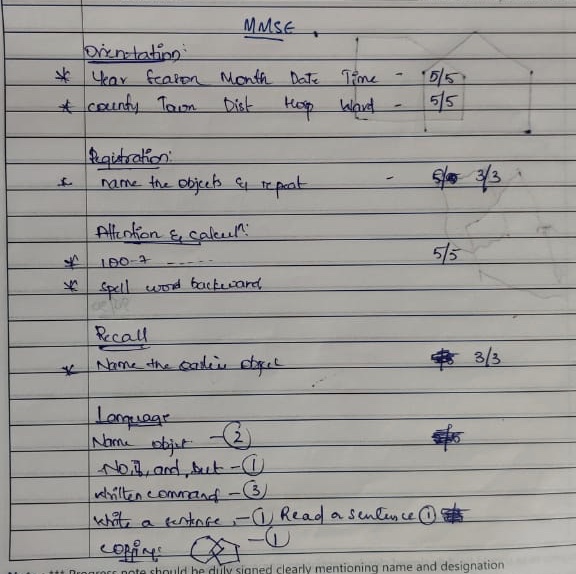 MMSE.
Orientation:
* Year Season Month Date Time - 5/5
* county Town Dist Hosp Ward - 5/5
Registration:
* name the objects & repeat - 3/3
Attention & calculn:
* 100-7 ------ 5/5
* spell word backward
Recall
* Name the earlier object 3/3
Language
Name object - 2
No, if, and, but - 1
written command - 3
Write a sentence, - 1 Read a sentence 1
copying: - 1
Progress note should be duly signed clearly mentioning name and designation